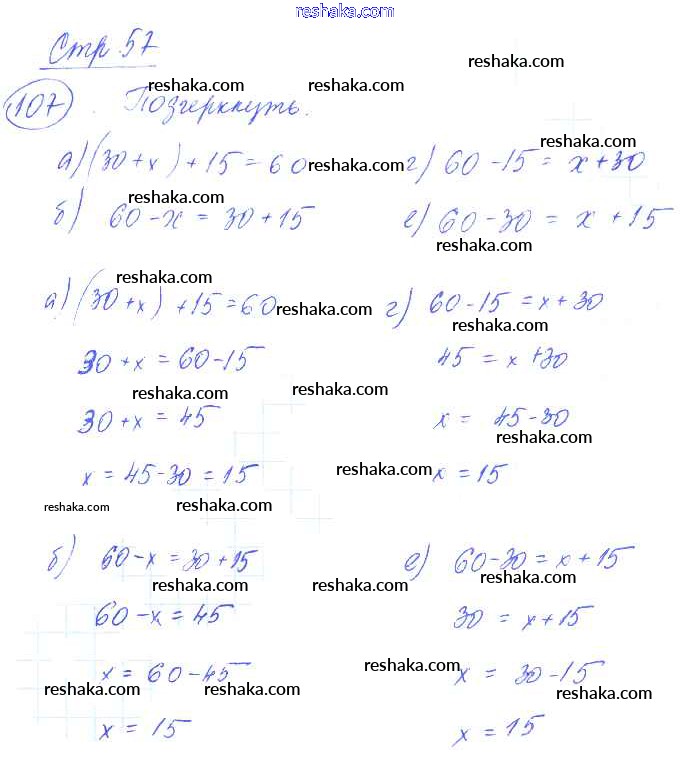 reshaka.com
Стр 57
reshaka.com reshaka.com reshaka.com
107. Подчеркнуть.
reshaka.com
а) (30 + x) + 15 = 60 reshaka.com г) 60 - 15 = x + 30
reshaka.com
б) 60 - x = 30 + 15 е) 60 - 30 = x + 15
reshaka.com
reshaka.com
а) (30 + x) + 15 = 60 reshaka.com г) 60 - 15 = x + 30
reshaka.com
30 + x = 60 - 15 45 = x + 30
reshaka.com reshaka.com
30 + x = 45 x = 45 - 30
reshaka.com
x = 45 - 30 = 15 x = 15
reshaka.com reshaka.com reshaka.com
б) 60 - x = 30 + 15 е) 60 - 30 = x + 15
reshaka.com reshaka.com reshaka.com
60 - x = 45 30 = x + 15
reshaka.com
x = 60 - 45 x = 30 - 15
reshaka.com reshaka.com reshaka.com
x = 15 x = 15